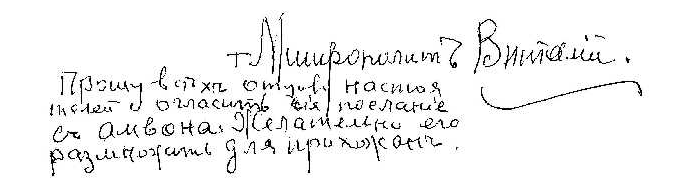 + Митрополитъ Виталій.
Прошу всѣхъ отцовъ настоя
телей огласить сіе посланіе
съ амвона. Желательно его
размножать для прихожанъ.